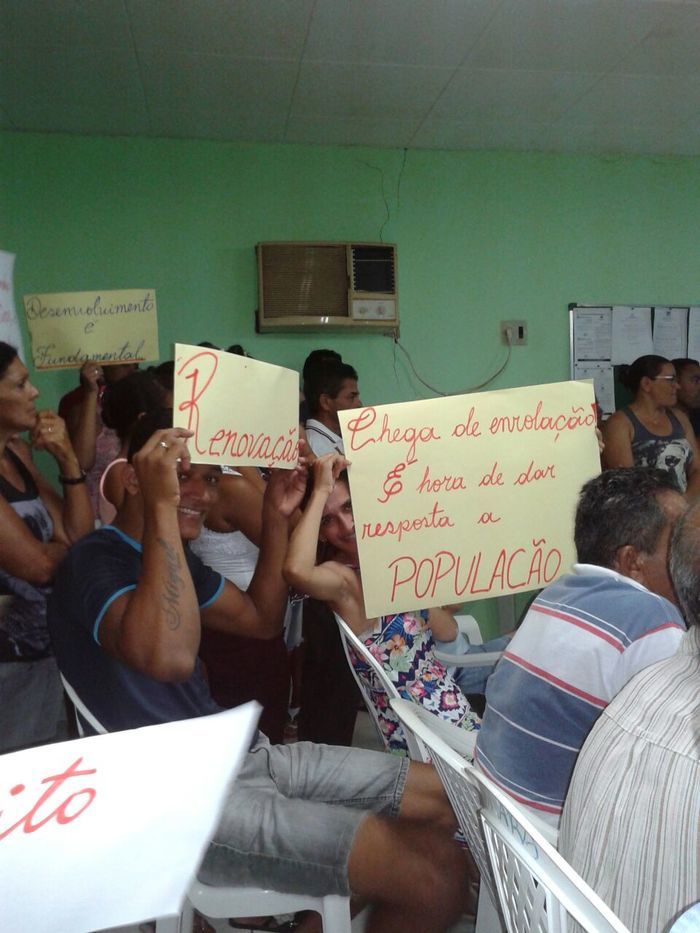 Desenvolvimento
é
Fundamental
Renovação
Chega de enrolação
É hora de dar
resposta a
POPULAÇÃO
ito